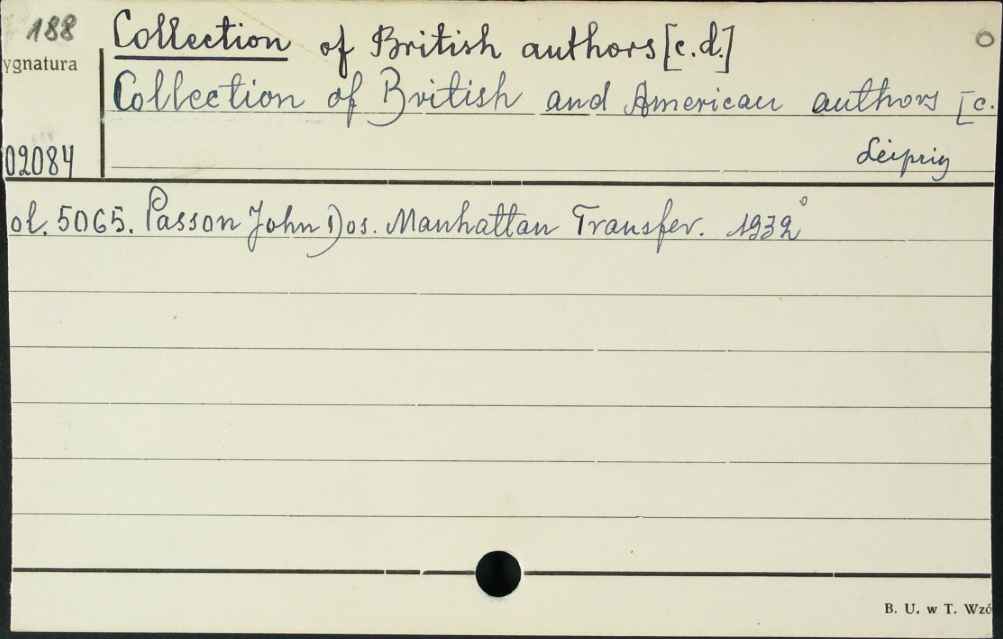 188
Collection of British authors [c.d.]
ygnatura
Collection of British and American authors [c.
02084
Leipzig
ol. 5065. Passon John Dos. Manhattan Transfer. 1932°
B. U. w T. Wzó